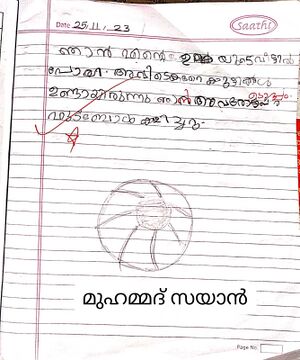 Saathi
Date 25/11/23
ഞാൻ എന്റെ ഉമ്മ യുടെ വീട്ടിൽ
പോയി അവിടെ കുറെ കുട്ടികൾ
ഉണ്ടായിരുന്നു ഞാൻ അവരോടൊപ്പം
ഫുട്ബോൾ കളിച്ചു.
മുഹമ്മദ് സയാൻ
Page No.